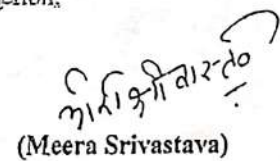 मीरा श्रीवास्तव
(Meera Srivastava)